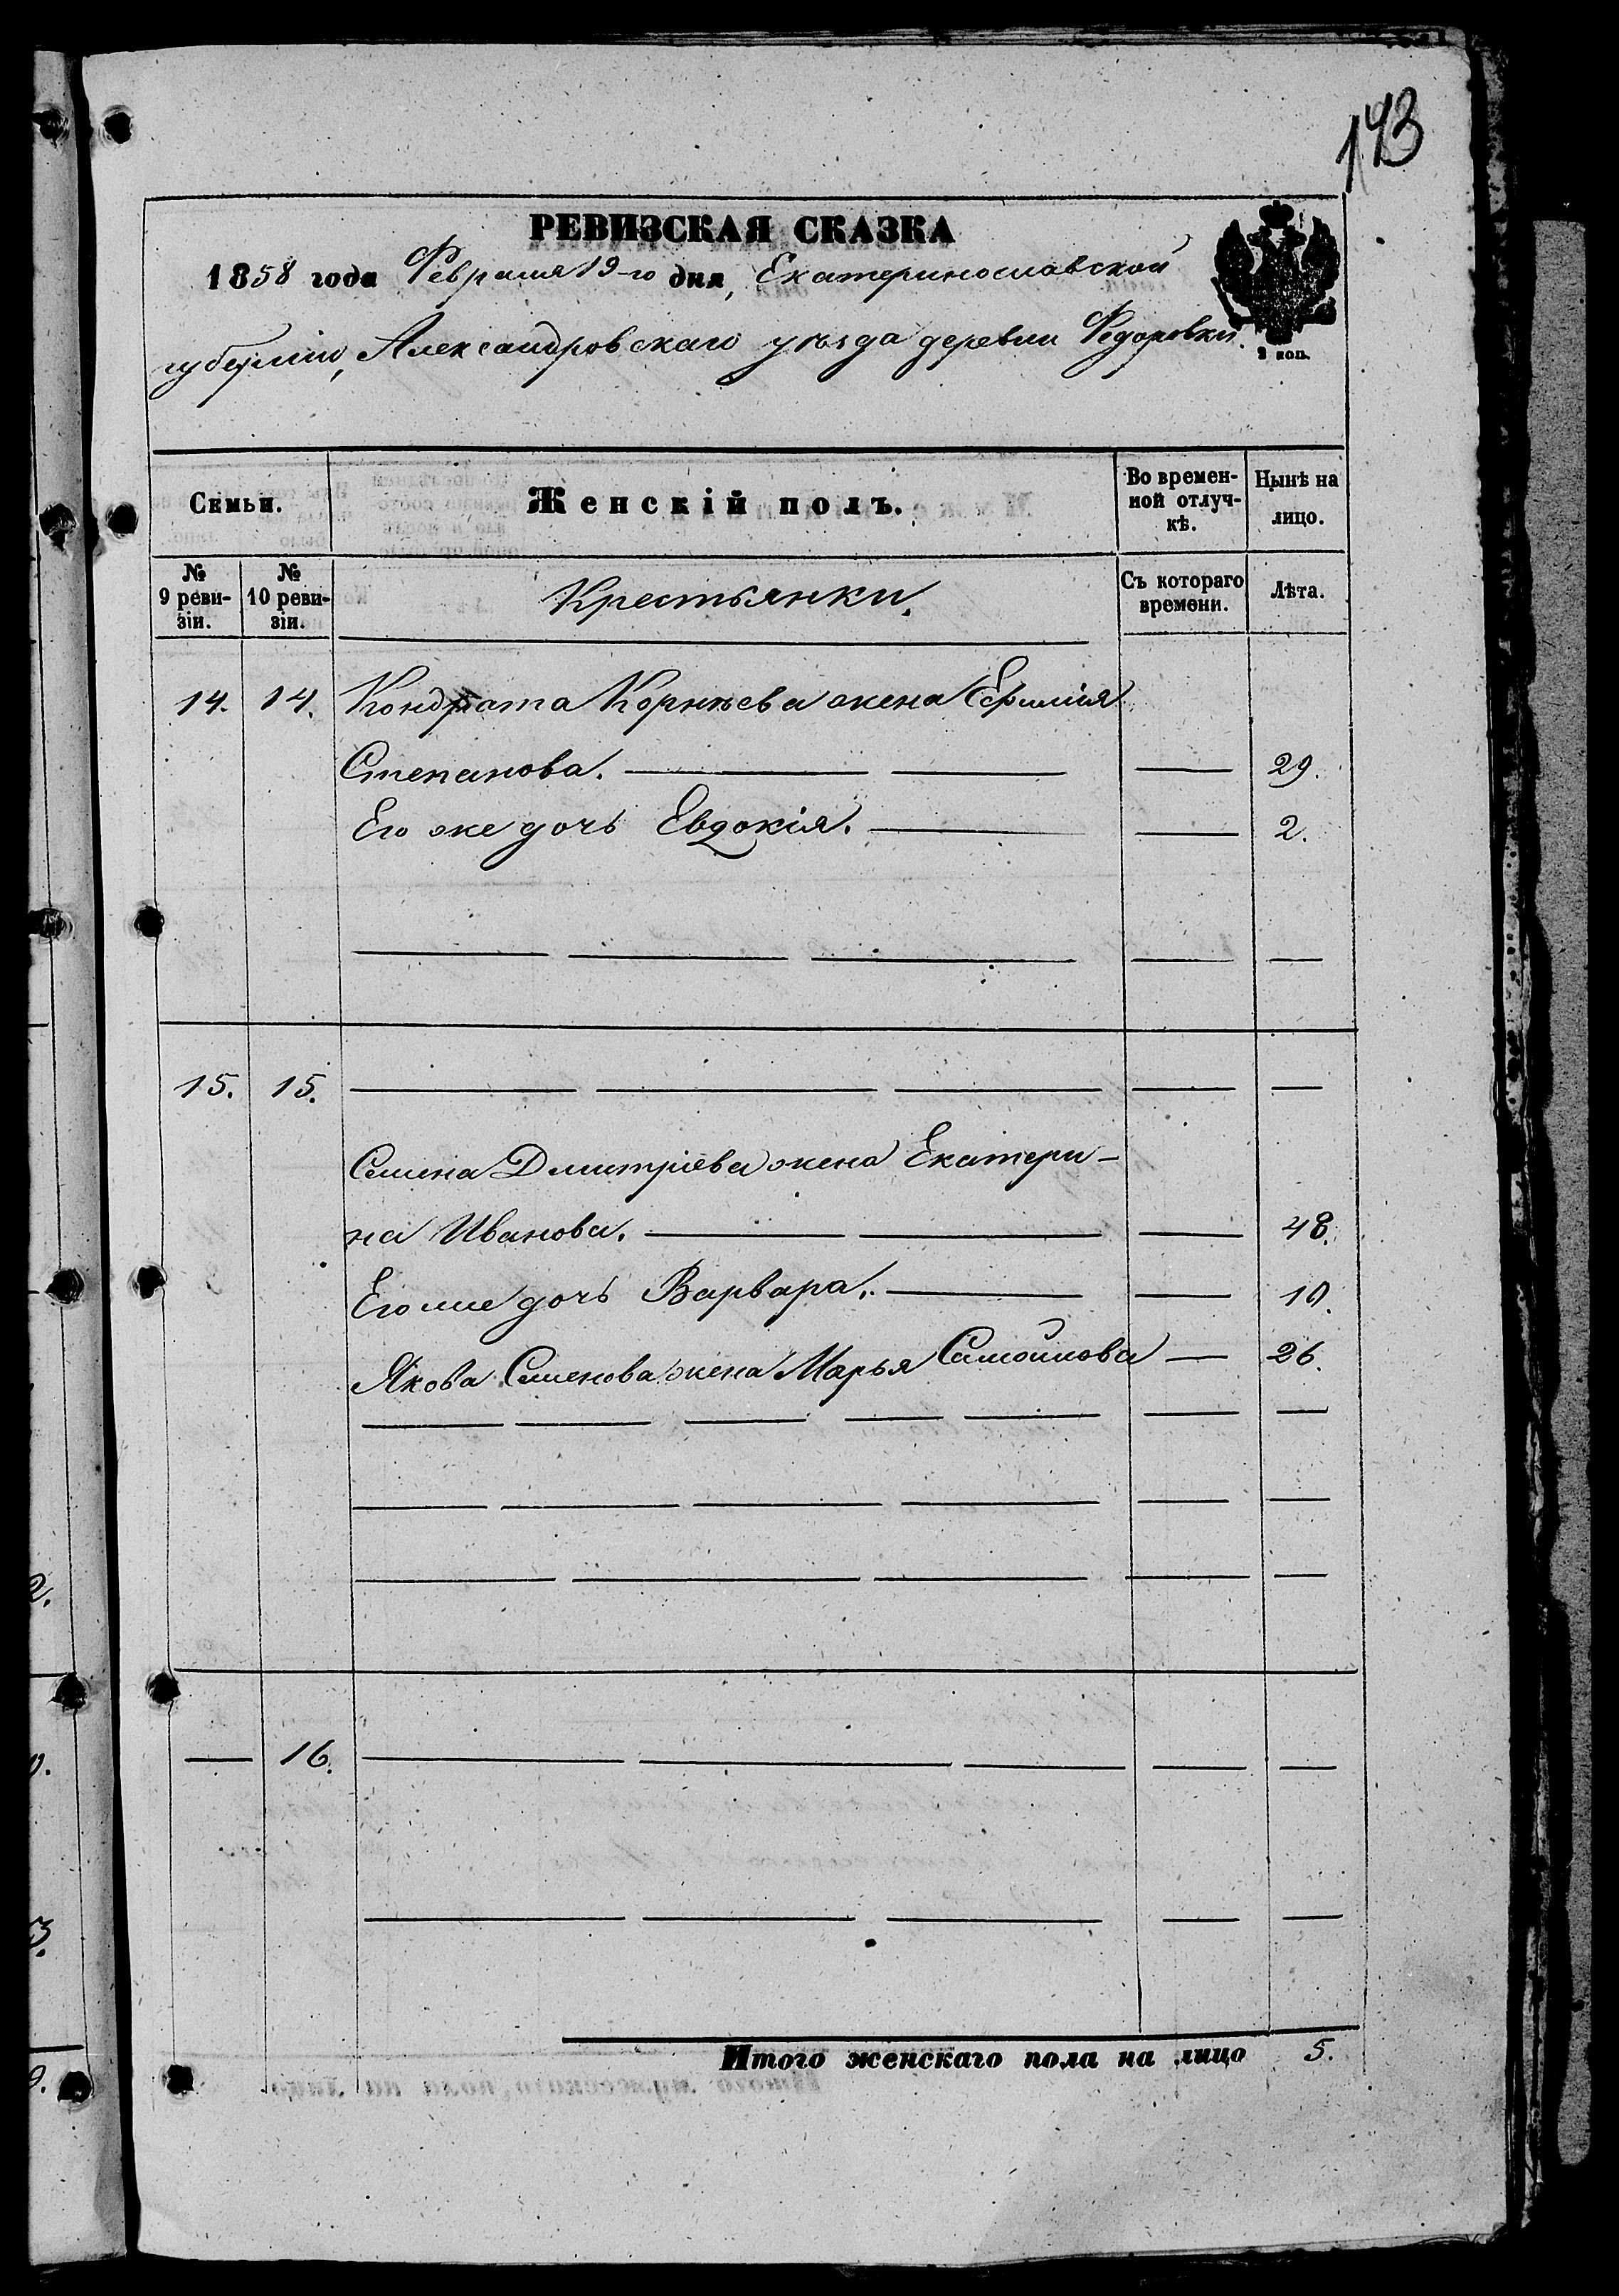 193
РЕВИЗСКАЯ СКАЗКА
1858 года Февраля 19-го дня, Екатеринославской
губерніи, Александровскаго уѣзда деревни Федоровки.
2 коп.
Семьи. Женскій полъ. Во времен-ной отлуч-кѣ. Нынѣ на лицо.
№ 9 реви-зіи. № 10 реви-зіи. Крестьянки. Съ котораго времени. Лѣта.
14. 14. Кондрата Корнѣева жена Ефимія
Степанова. 29.
Его же дочь Евдокія. 2.
15. 15.
Семена Дмитріева жена Екатери-
на Иванова. 48.
Его же дочь Варвара. 10.
Якова Семенова жена Марья Самойлова 26.
16.
Итого женскаго пола на лицо 5.